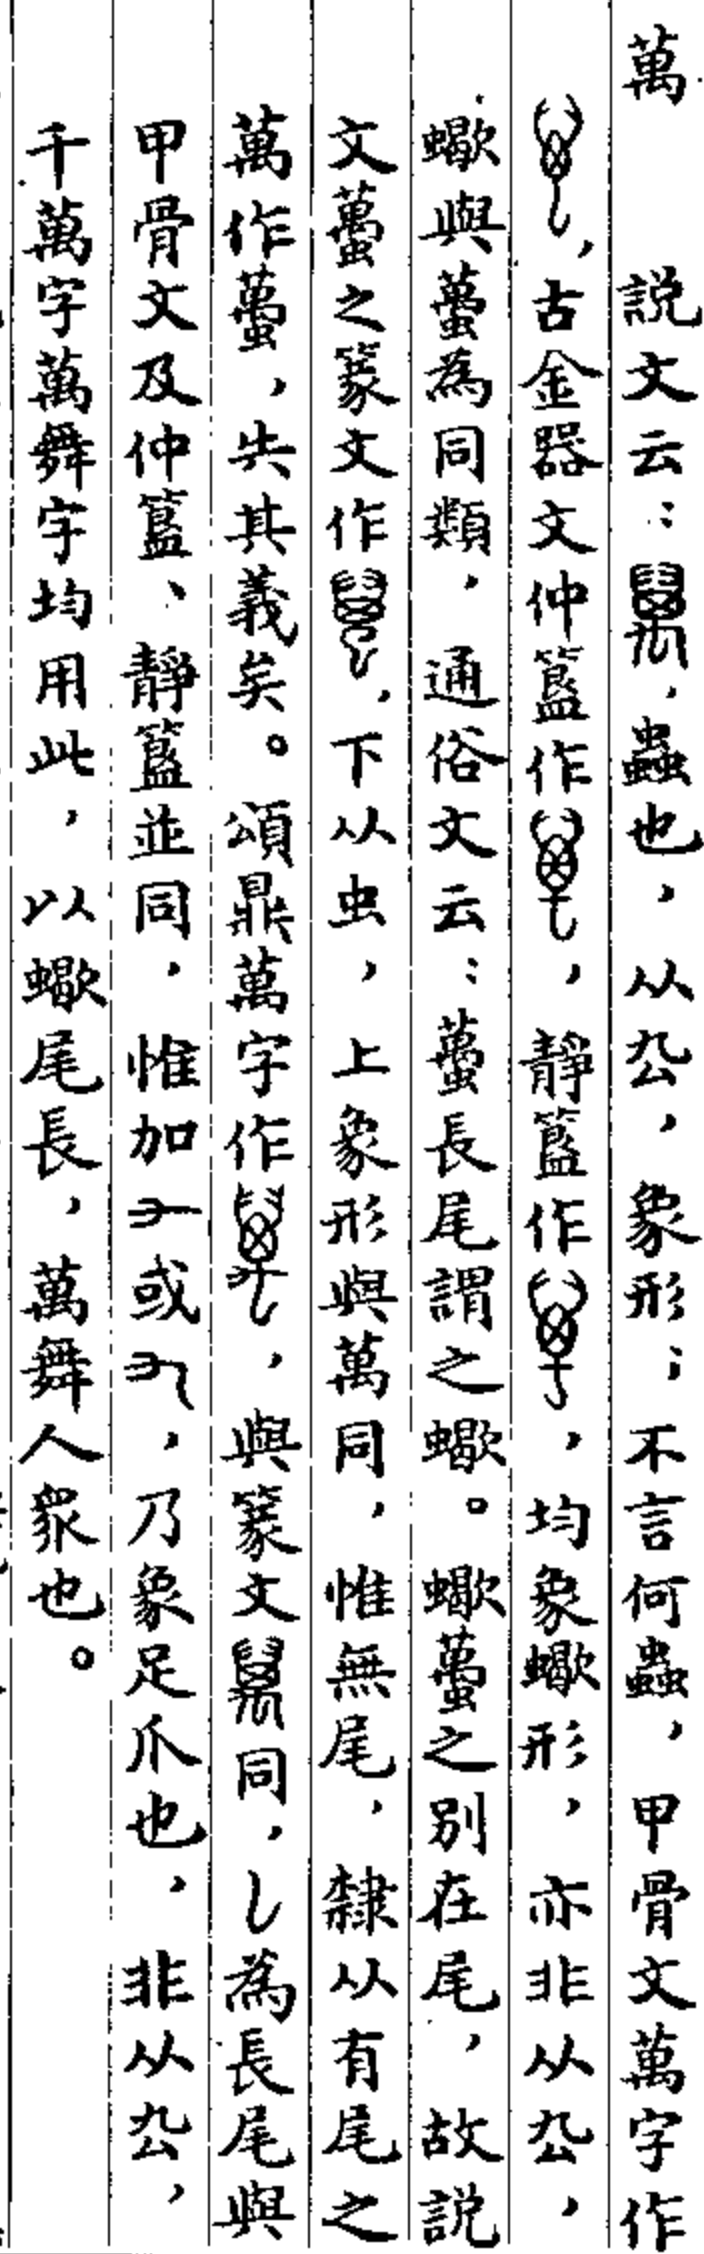 萬　説文云：，蟲也，从厹，象形；不言何蟲，甲骨文萬字作
，古金器文仲簋作，靜簋作，均象蠍形，亦非从厹，
蠍與蠆為同類，通俗文云：蠆長尾謂之蠍。蠍蠆之別在尾，故説
文蠆之篆文作，下从虫，上象形與萬同，惟無尾，隸从有尾之
萬作蠆，失其義矣。頌鼎萬字作，與篆文同，乚為長尾與
甲骨文及仲簋、靜簋並同，惟加或，乃象足爪也，非从厹，
千萬字萬舞字均用此，以蠍尾長，萬舞人眾也。